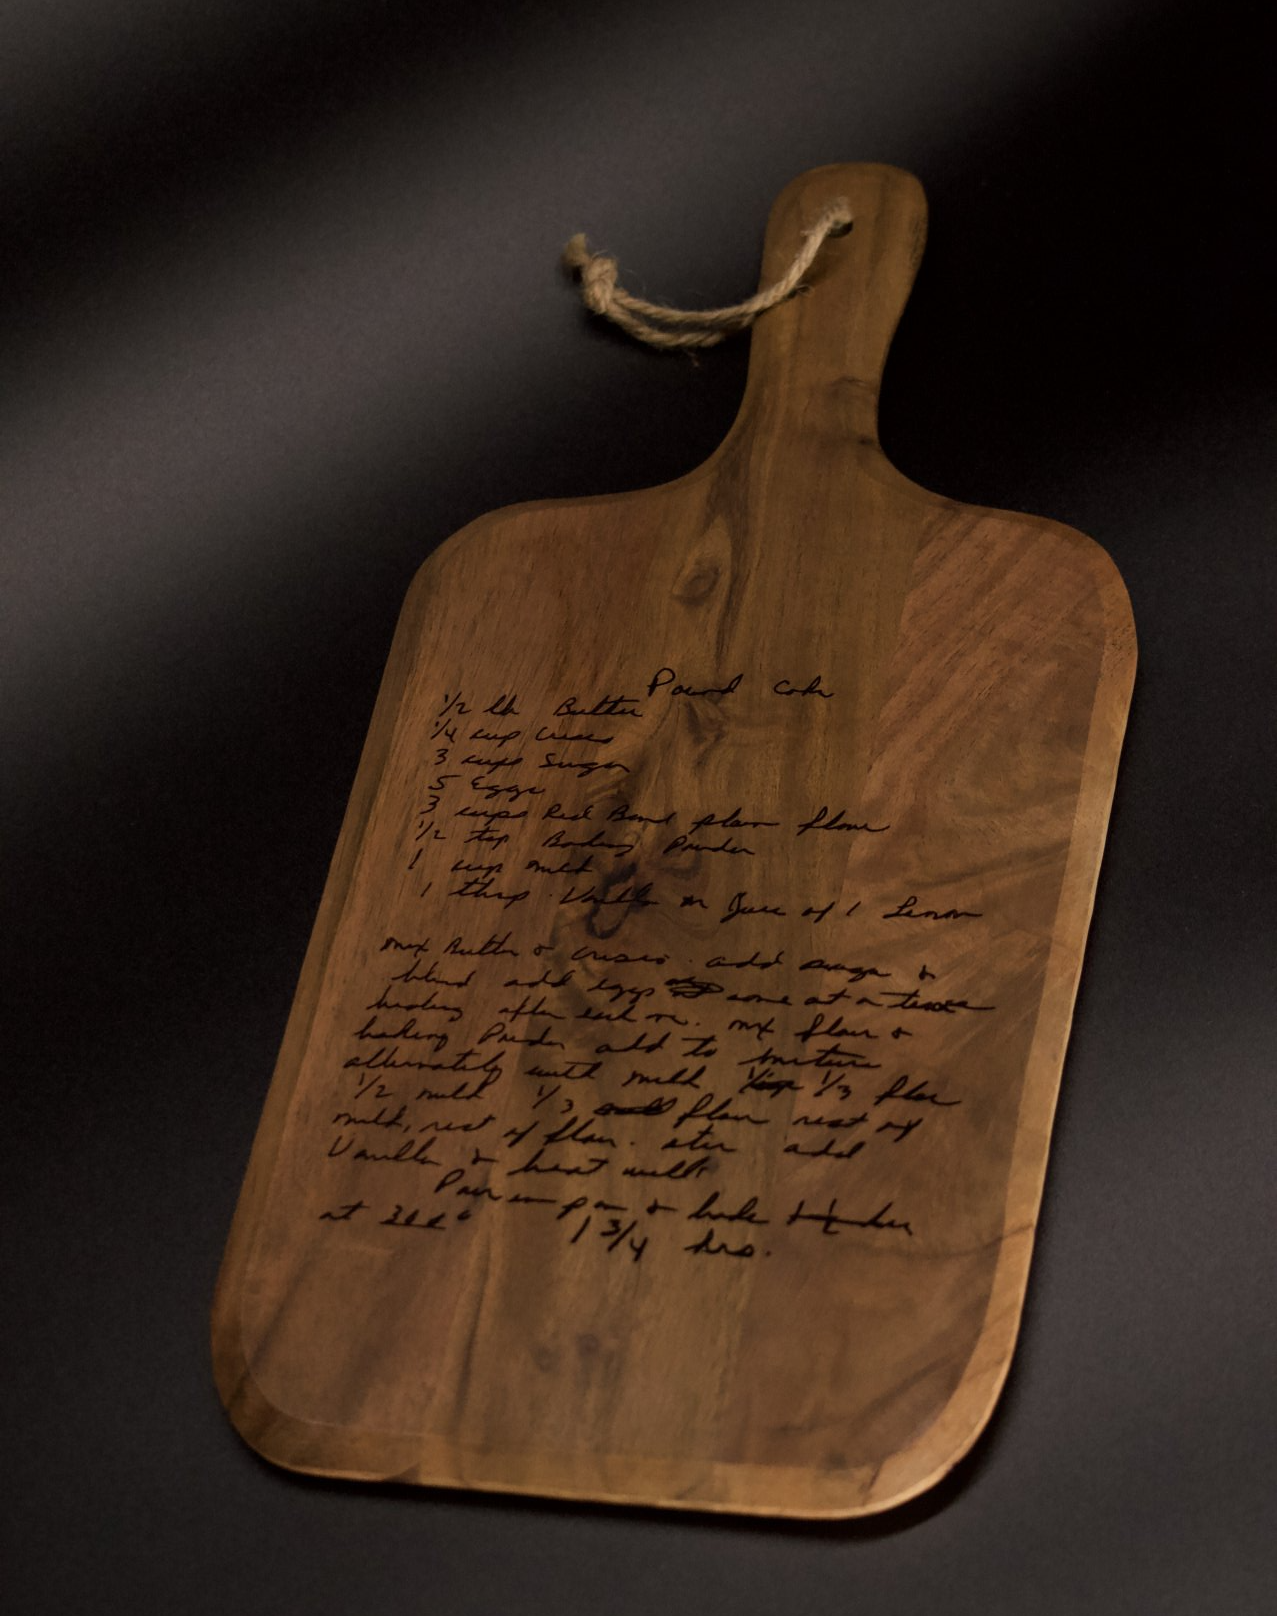 Pound Cake
1/2 lb Butter
1/4 cup Crisco
3 cups Sugar
5 Eggs
3 cups Red Band plain flour
1/2 tsp Baking Powder
1 cup milk
1 tbsp Vanilla or Juice of 1 Lemon
mix Butter & Crisco. add sugar &
blend add eggs one at a time
beating after each one. mix flour &
baking Powder add to mixture
alternately with milk 1/3 flour
1/2 milk 1/3 flour rest of
milk, rest of flour. add
Vanilla & beat well.
Pour in pan & bake
at 300° 1 3/4 hrs.